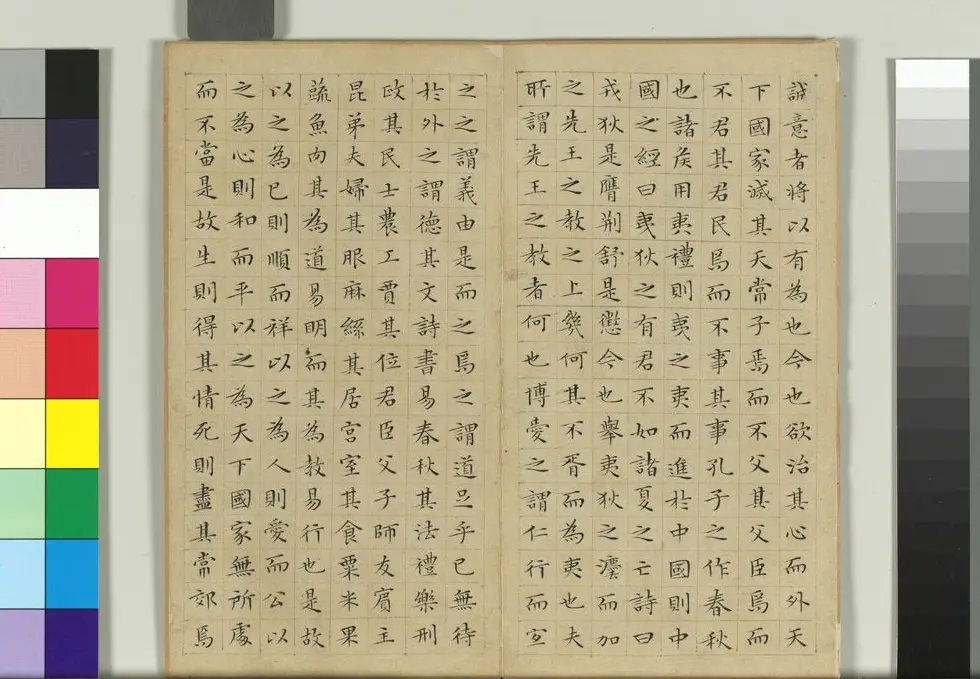 誠意者將以有為也今也欲治其心而外天
下國家滅其天常子焉而不父其父臣焉而
不君其君民焉而不事其事孔子之作春秋
也諸侯用夷禮則夷之夷而進於中國則中
國之經曰夷狄之有君不如諸夏之亡詩曰
戎狄是膺荆舒是懲今也舉夷狄之灋而加
之先王之教之上幾何其不胥而為夷也夫
所謂先王之教者何也博愛之謂仁行而宜
之之謂義由是而之焉之謂道足乎已無待
於外之謂德其文詩書易春秋其法禮樂刑
政其民士農工賈其位君臣父子師友賓主
昆弟夫婦其服麻絲其居宮室其食粟米果
蔬魚肉其為道易明而其為教易行也是故
以之為已則順而祥以之為人則愛而公以
之為心則和而平以之為天下國家無所處
而不當是故生則得其情死則盡其常郊焉